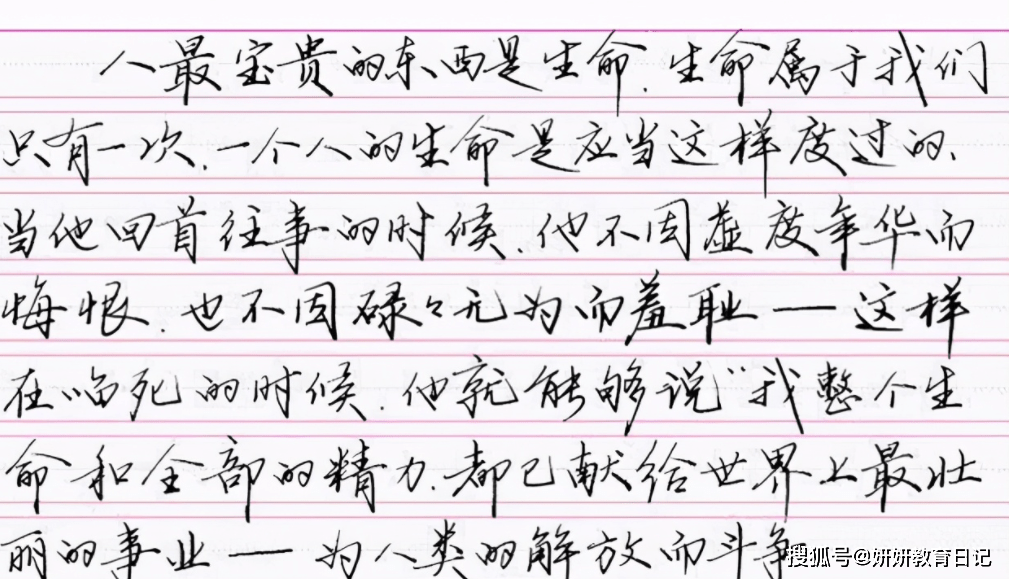 人最宝贵的东西是生命.生命属于我们
只有一次.一个人的生命是应当这样度过的.
当他回首往事的时候.他不因虚度年华而
悔恨.也不因碌々无为而羞耻——这样
在临死的时候.他就能够说"我整个生
命和全部的精力.都已献给世界上最壮
丽的事业——为人类的解放而斗争
搜狐号@妍妍教育日记